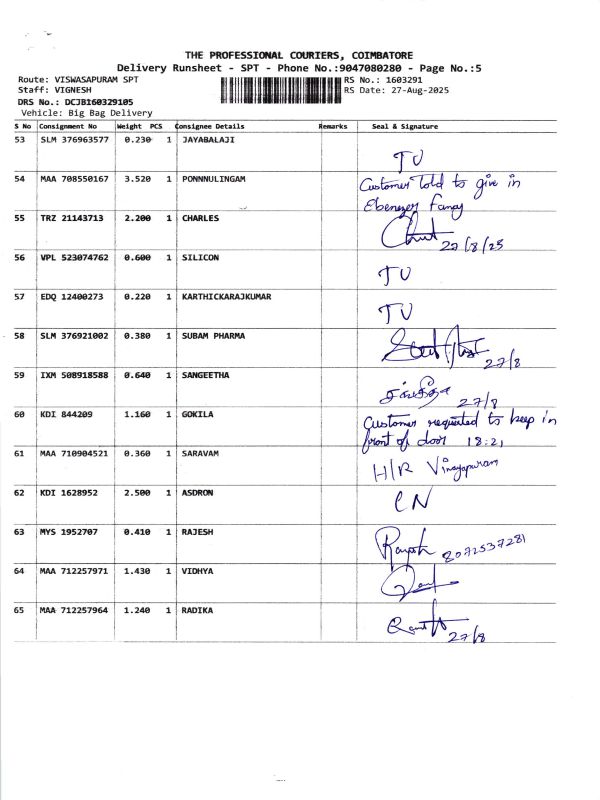 THE PROFESSIONAL COURIERS, COIMBATORE
Delivery Runsheet - SPT - Phone No.:9047080280 - Page No.:5
Route: VISWASAPURAM SPT RS No.: 1603291
Staff: VIGNESH RS Date: 27-Aug-2025
DRS No.: DCJB160329105
Vehicle: Big Bag Delivery
S No Consignment No Weight PCS Consignee Details Remarks Seal & Signature
53 SLM 376963577 0.230 1 JAYABALAJI
TU
54 MAA 708550167 3.520 1 PONNNULINGAM Customer told to give in
Ebenezer
55 TRZ 21143713 2.200 1 CHARLES
27/8/25
56 VPL 523074762 0.600 1 SILICON
TU
57 EDQ 12400273 0.220 1 KARTHICKARAJKUMAR
TU
58 SLM 376921002 0.380 1 SUBAM PHARMA
27/8
59 IXM 508918588 0.640 1 SANGEETHA
27/8
60 KDI 844209 1.160 1 GOKILA Customer requested to keep in
front of door 18:21
61 MAA 710904521 0.360 1 SARAVAM
H/R Vinayapuram
62 KDI 1628952 2.500 1 ASDRON
CN
63 MYS 1952707 0.410 1 RAJESH
8072537281
64 MAA 712257971 1.430 1 VIDHYA
65 MAA 712257964 1.240 1 RADIKA
27/8